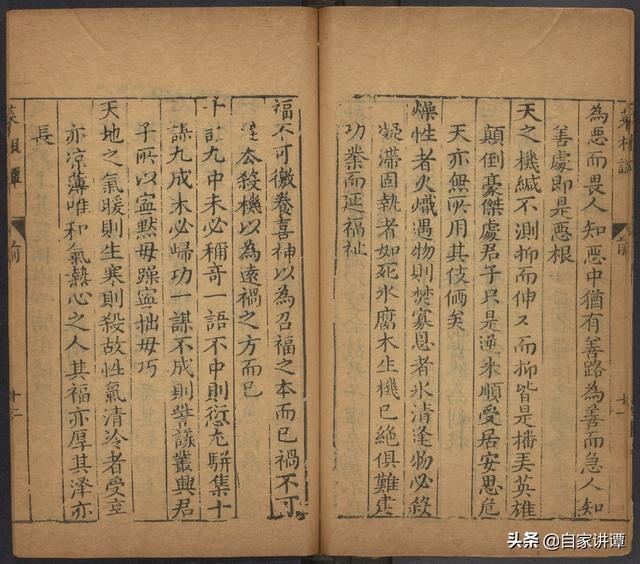 為惡而畏人知惡中猶有善路為善而急人知
善處即是惡根
天之機緘不測抑而伸又而抑皆是播弄英雄
顛倒豪傑處君子只是逆來順受居安思危
天亦無所用其伎倆矣
燥性者火熾遇物則焚寡恩者氷清逢物必殺
凝滯固執者如死水腐木生機已絕俱難建
功業而延福祉
福不可徼養喜神以為召福之本而已禍不可
去殺機以為遠禍之方而已
十語九中未必稱奇一語不中則愆尤駢集十
謀九成未必歸功一謀不成則訾議叢興君
子所以寧默毋躁寧拙毋巧
天地之氣暖則生寒則殺故性氣清冷者受享
亦凉薄唯和氣熱心之人其福亦厚其澤亦
長
菜根譚 前 十二
头条 @自家讲谭